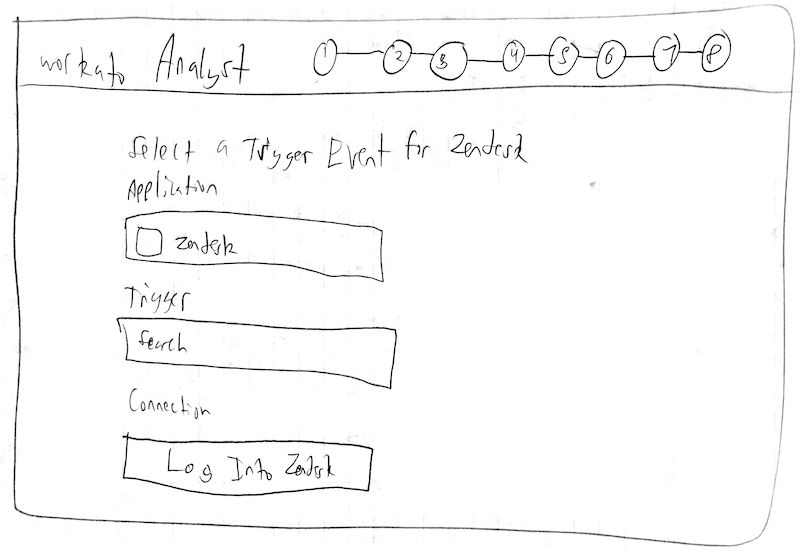 workato Analyst 1 2 3 4 5 6 7 8
Select a Trigger Event for Zendesk
Application
Zendesk
Trigger
Search
Connection
Log Into Zendesk